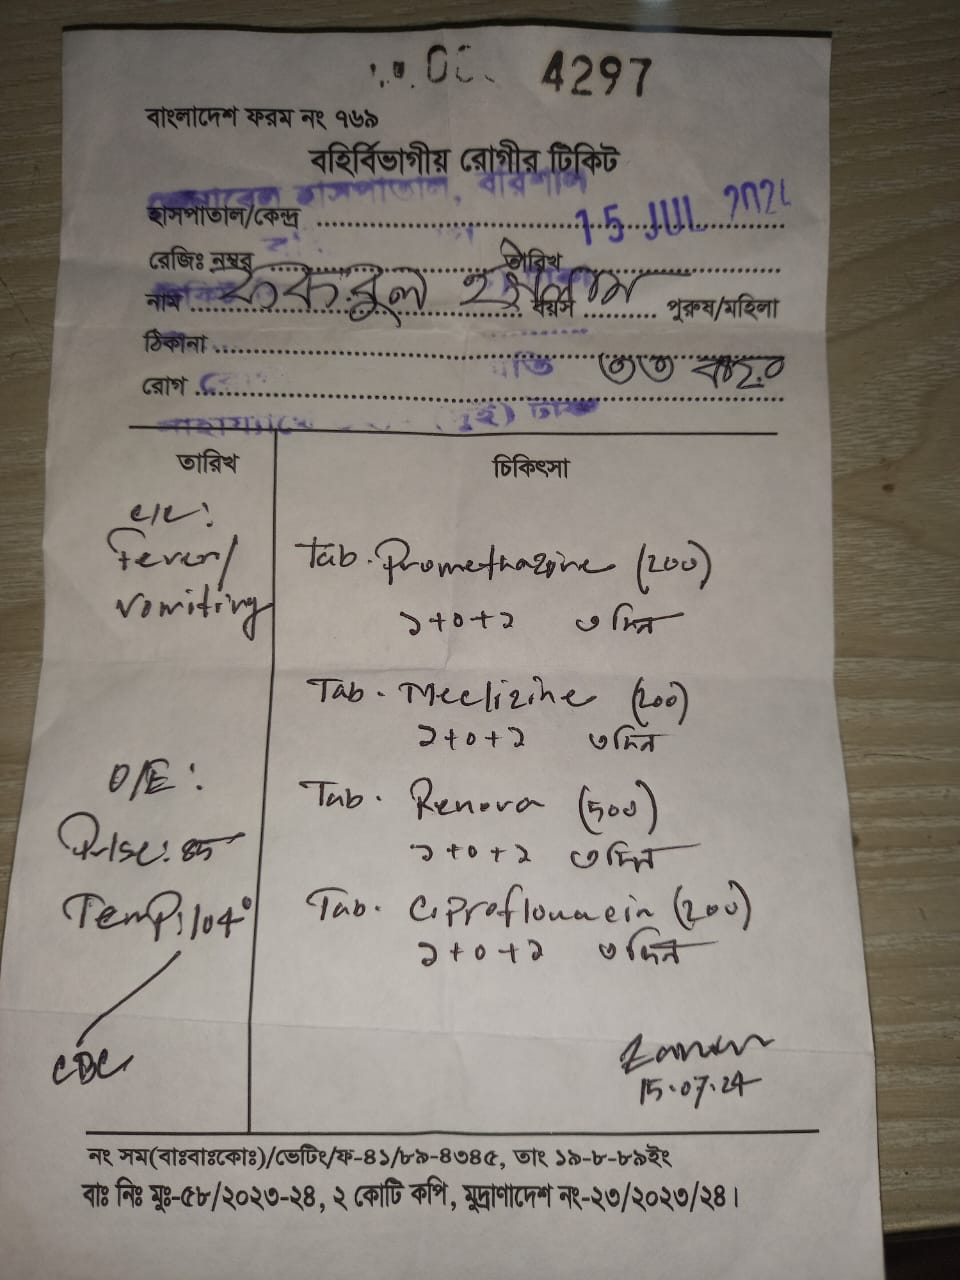 4297
বাংলাদেশ ফরম নং ৭৬৯
বহির্বিভাগীয় রোগীর টিকিট
হাসপাতাল, বরিশাল
হাসপাতাল/কেন্দ্র
15 JUL 2024
রেজিঃ নম্বর তারিখ
নাম ইসলাম বয়স পুরুষ/মহিলা
ঠিকানা
রোগ
তারিখ চিকিৎসা
c/c:
Fever/
vomiting
Tab. Promethazine (200)
১+০+১ ৩ দিন
Tab. Meclizine (200)
১+০+১ ৩ দিন
O/E:
Pulse: 85
Temp: 104°
CBC
Tab. Renova (500)
১+০+১ ৩ দিন
Tab. Ciprofloxacin (200)
১+০+১ ৩ দিন
15.07.24
নং সম(বাঃবাঃকোঃ)/ভেটিং/ফ-৪১/৮৯-৪৩৪৫, তাং ১৯-৮-৮৯ইং
বাঃ নিঃ মুঃ-৫৮/২০২৩-২৪, ২ কোটি কপি, মুদ্রণাদেশ নং-২৩/২০২৩/২৪।